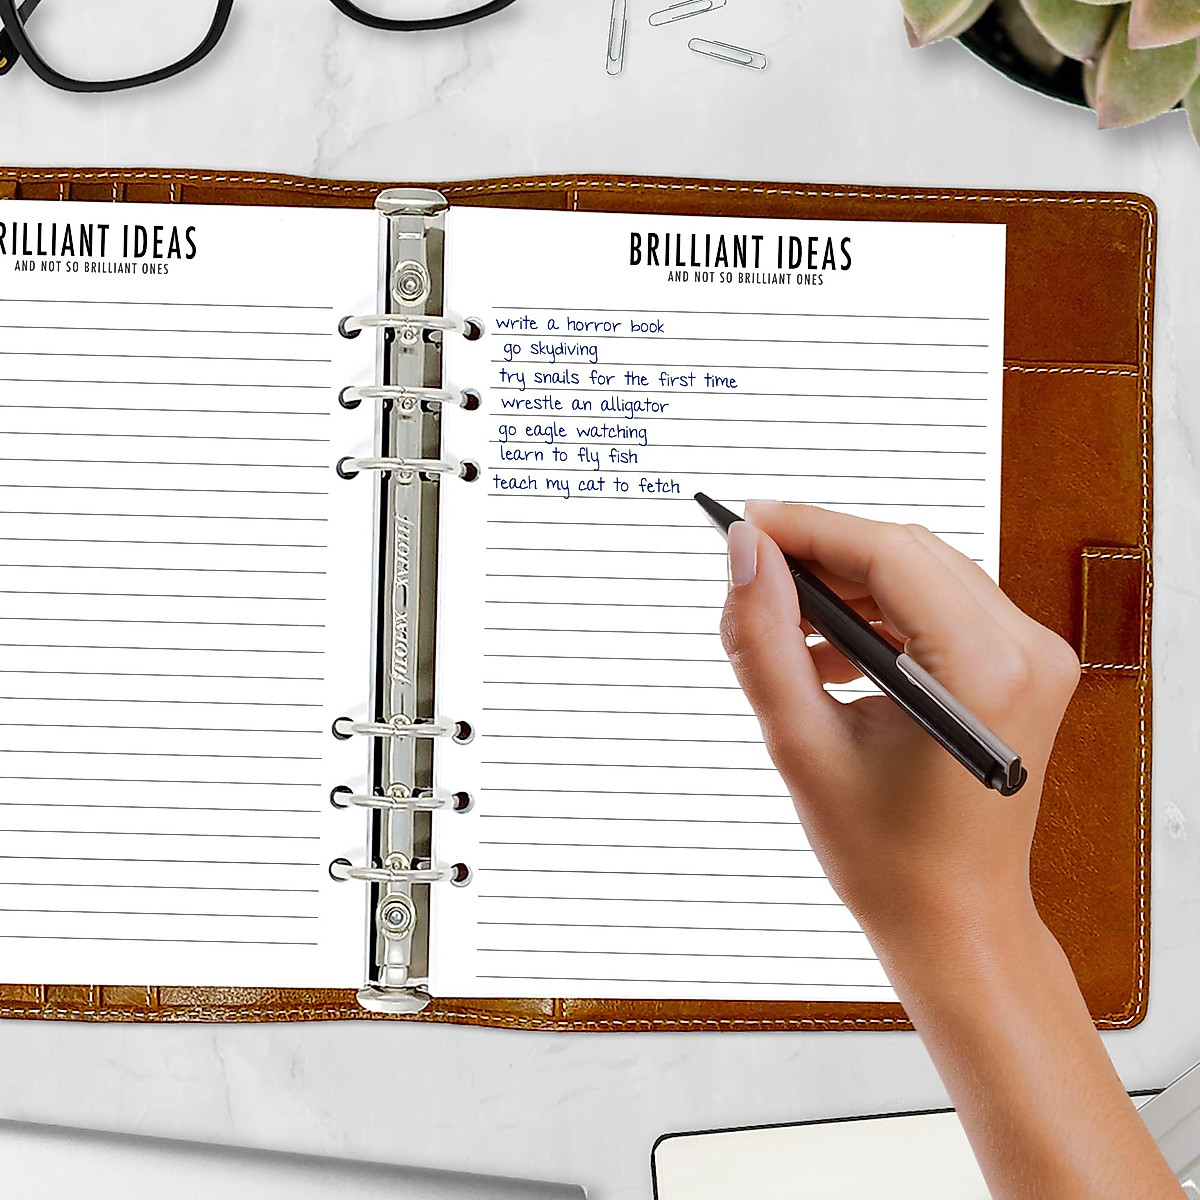 RILLIANT IDEAS
AND NOT SO BRILLIANT ONES
BRILLIANT IDEAS
AND NOT SO BRILLIANT ONES
write a horror book
go skydiving
try snails for the first time
wrestle an alligator
go eagle watching
learn to fly fish
teach my cat to fetch